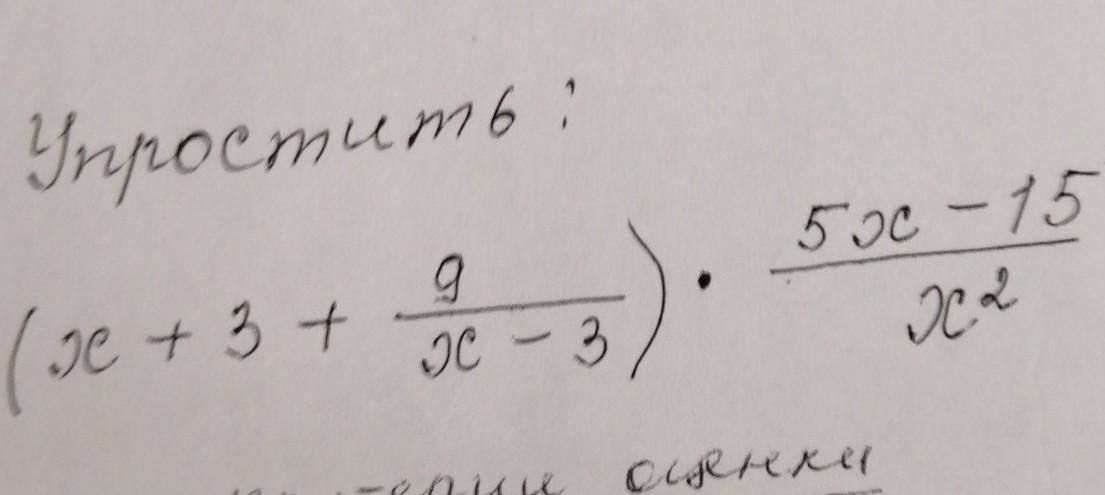 Упростить:
(x + 3 + 9/(x - 3)) · (5x - 15)/x²
оценки